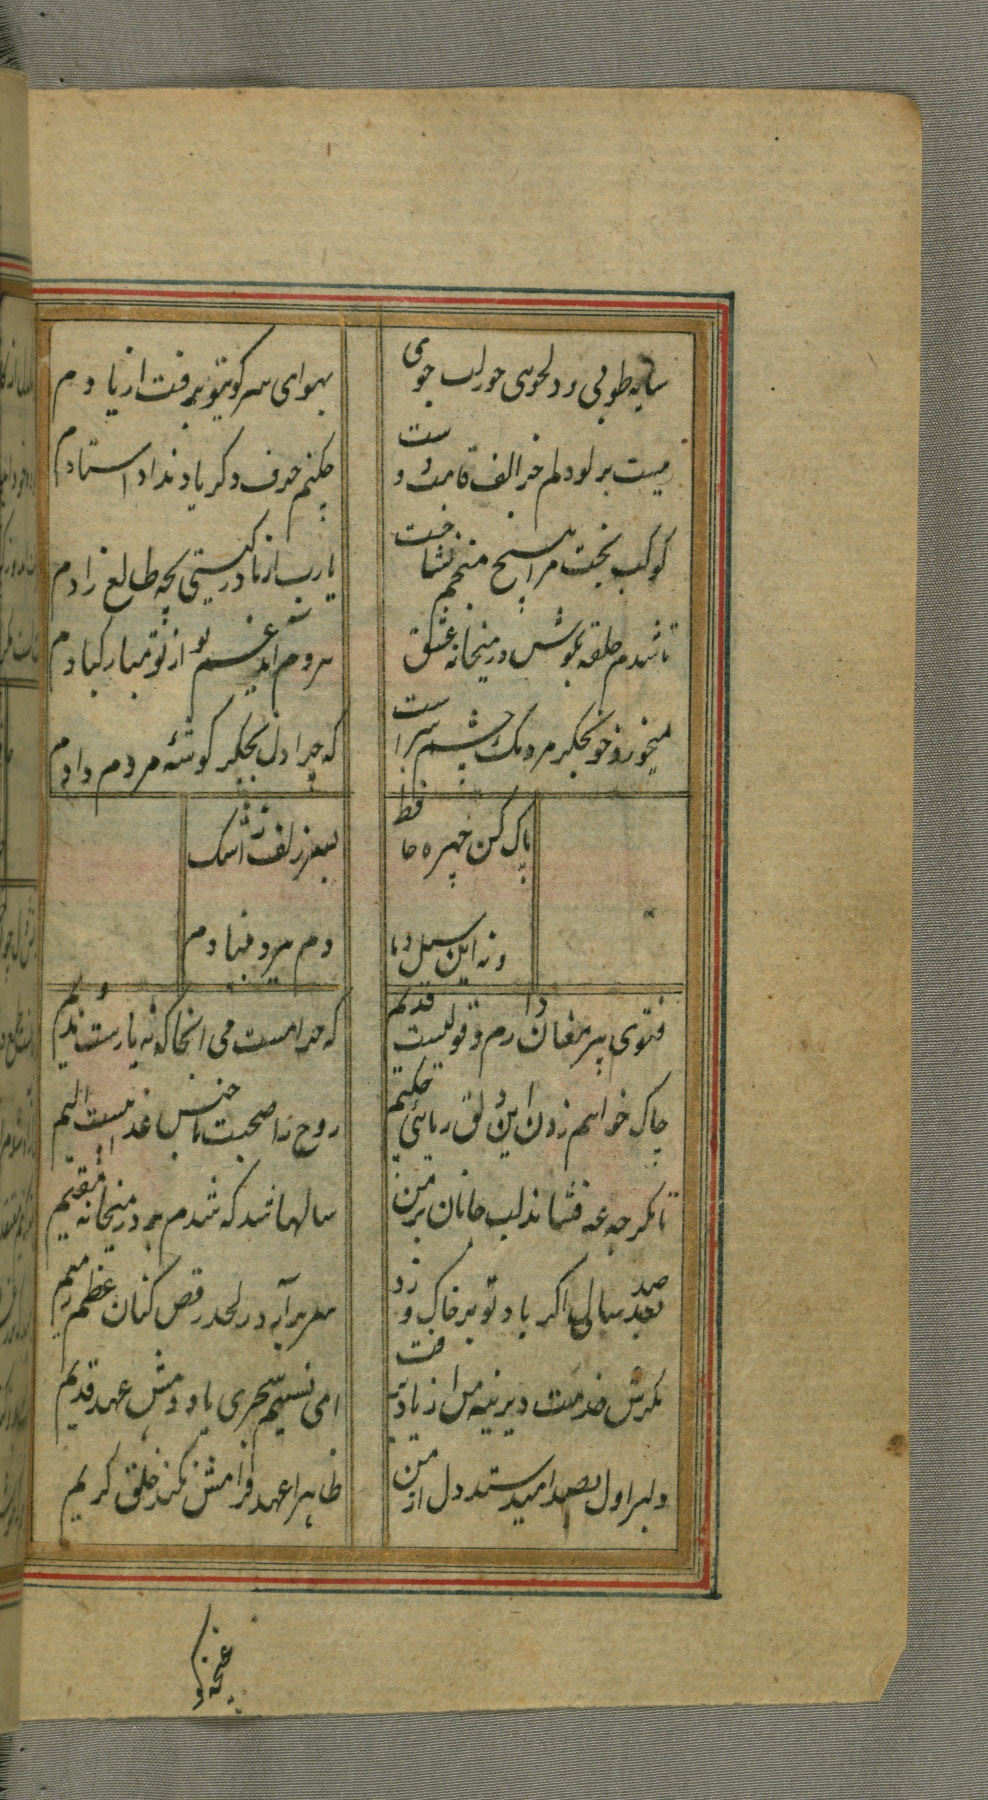 سایه طوبی و دلجوی حور لب جوی
بهوای سر کوی تو برفت از یادم
نیست بر لوح دلم جز الف قامت دوست
چکنم حرف دگر یاد نداد استادم
کوکب بخت مرا هیچ منجم نشناخت
یارب از مادر گیتی بچه طالع زادم
تا شدم حلقه بگوش در میخانه عشق
هر دم آید غم نو از تو مبارکبادم
میخورد خون جگر مردمک چشم سزاست
که چرا دل بجگر گوشه مردم دادم
پاک کن چهره حافظ
بسر زلف ز اشک
ورنه این سیل دما
دم ببرد بنیادم
فتوی پیر مغان دارم و قولیست قدیم
که حرامست می انجا که نه یارست ندیم
چاک خواهم زدن این دلق ریائی چکنم
روح را صحبت ناجنس عذابیست الیم
تا مگر جرعه فشاند لب جانان بر من
سالها شد که شدم بر در میخانه مقیم
بعد صد سال اگر باد تو بر خاک وزد
سر برآرد ز لحد رقص کنان عظم رمیم
مگرش خدمت دیرینه من از یاد برفت
ای نسیم سحری یاد دهش عهد قدیم
دلبر اول بصد امید ستد دل از من
ظاهرا عهد فرامش نکند خلق کریم
غنچه گو